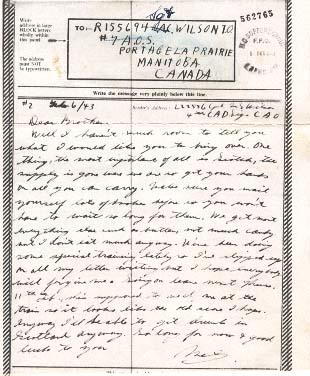 Write the address in large BLOCK letters wholly within this panel
The address must NOT be typewritten.
TO:- R155694 WILSON T.O
#7 A.O.S.
PORTAGE LA PRAIRIE
MANITOBA
CANADA
562765
Write the message very plainly below this line.
#2 6/43
Sender's Address:
Dear Brother
Well I haven't much room to tell you
what I would like you to bring over. One
thing, the most important of all is
supply is gone now we are so get your hands
on all you can carry. Make sure you mail
yourself lots of before so you won't
have to wait so long for them. We get most
everything else such as butter, not much candy
but I don't eat much anyway. We've been doing
some special training lately so I've slipped up
on all my letter writing but I hope everybody
will forgive me. going on leave next
11th supposed to meet me at the
train so it looks like the old I hope.
Anyway I'll be able to get drunk in
Scotland anyway. So long for now & good
luck to you